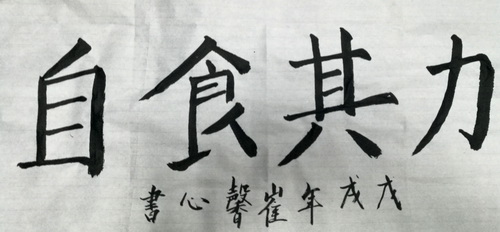 自食其力
戊戌年崔馨心書